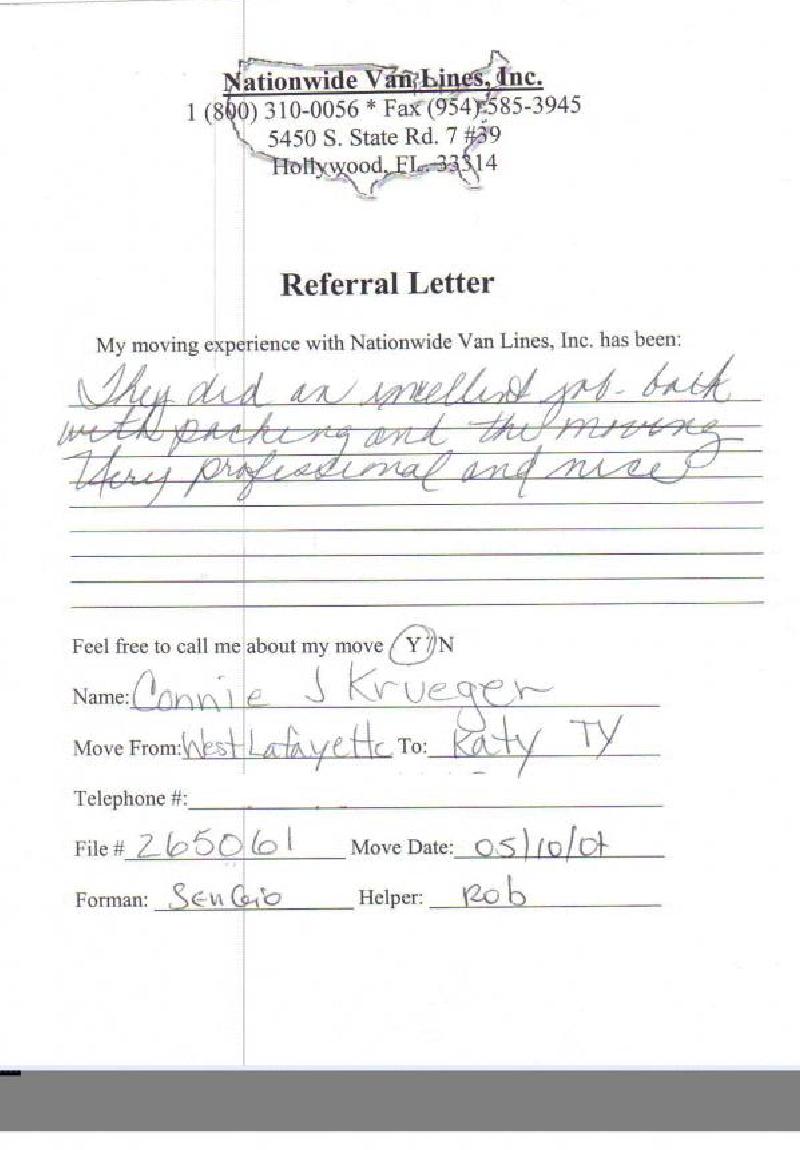 Nationwide Van Lines, Inc.
1 (800) 310-0056 * Fax (954) 585-3945
5450 S. State Rd. 7 #39
Hollywood, FL. 33314
Referral Letter
My moving experience with Nationwide Van Lines, Inc. has been:
They did an excellent job - both
with packing and the moving
Very professional and nice
Feel free to call me about my move Y / N
Name: Connie J Krueger
Move From: West Lafayette To: Katy TY
Telephone #:
File # 265061 Move Date: 05/10/07
Forman: Helper: Rob